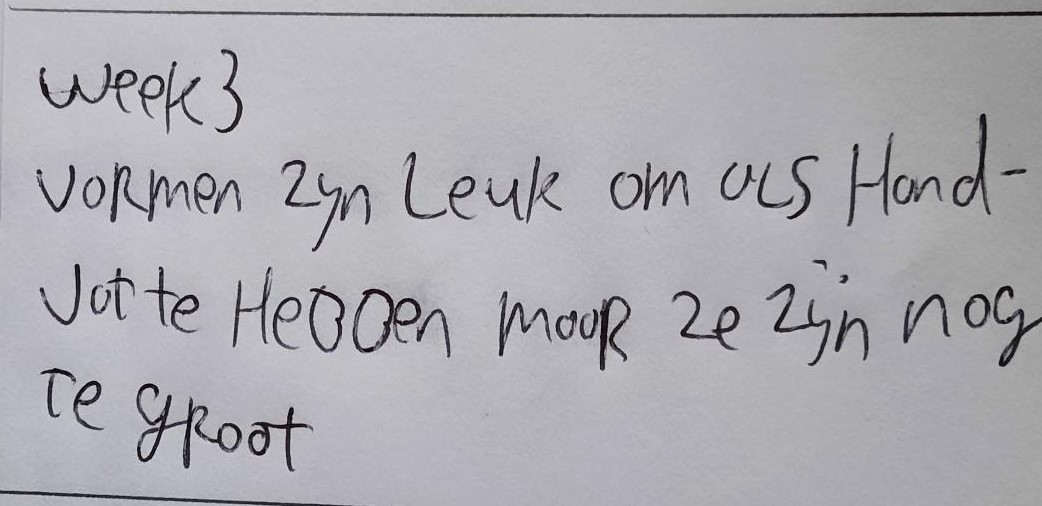 week 3
vormen zyn Leuk om als Hand-
vat te Hebben maar ze zijn nog
Te groot